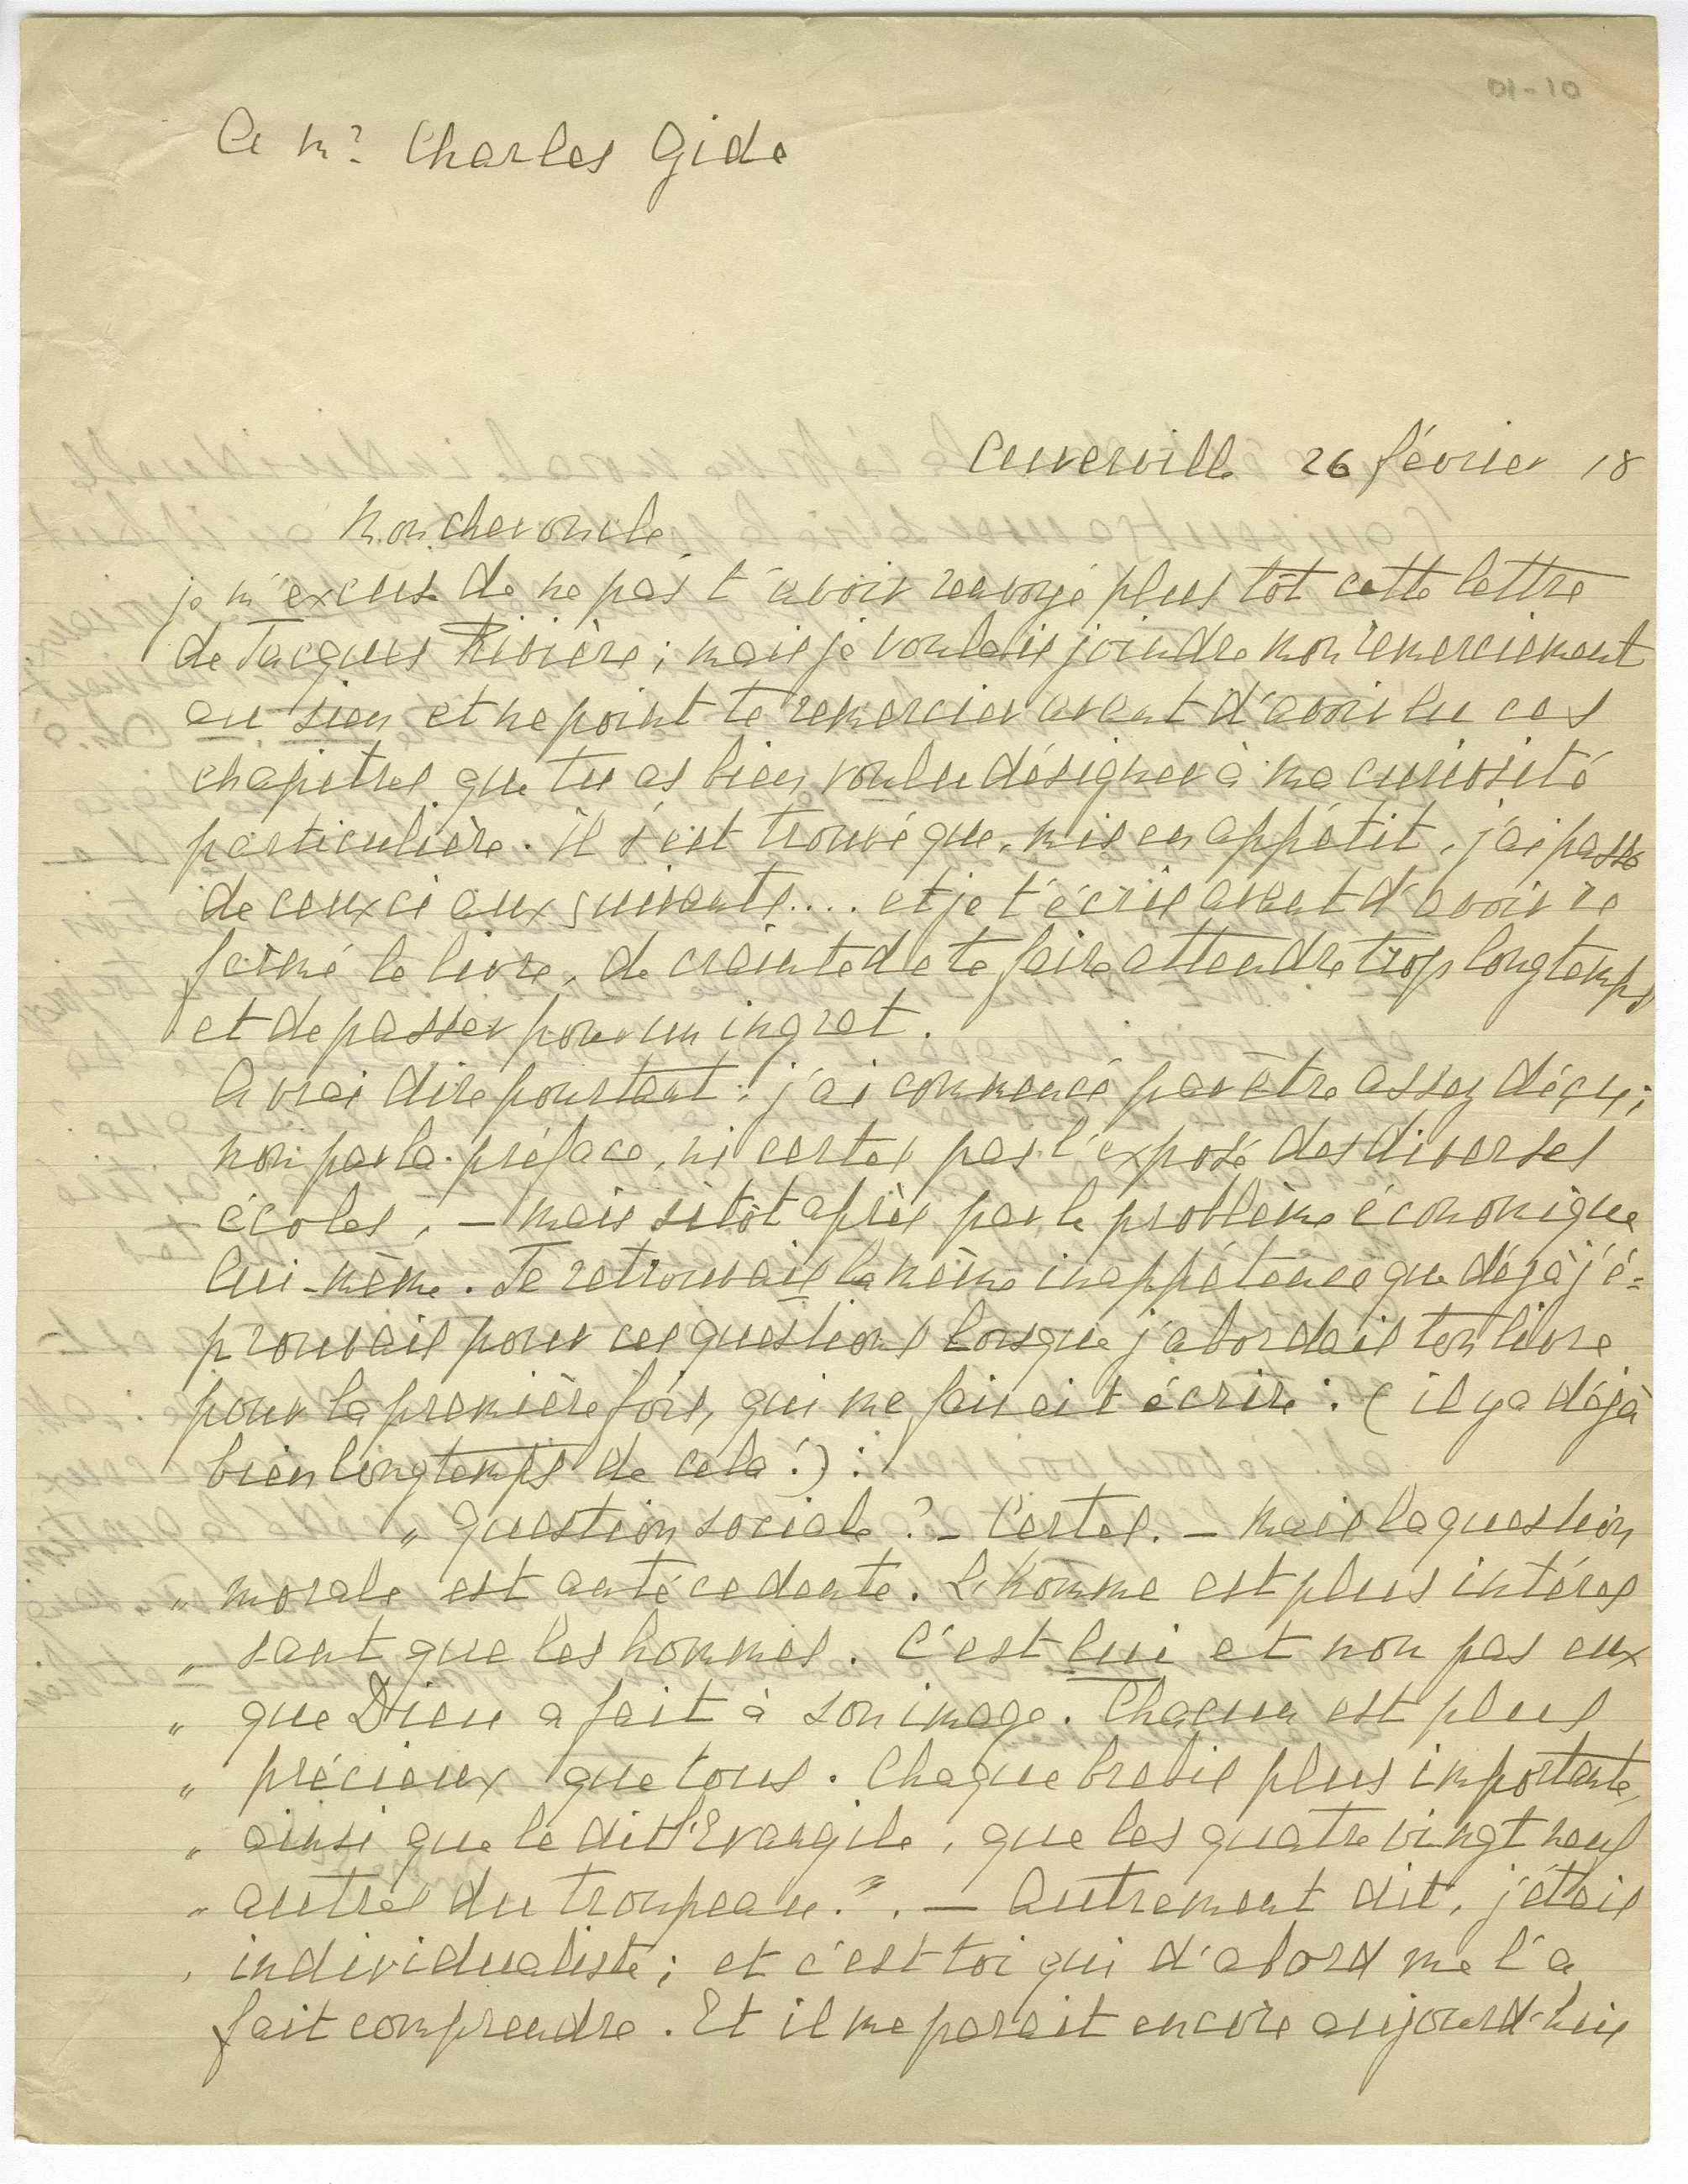 01-10
A Mr. Charles Gide
Cuverville 26 février 18
Mon cher oncle
je m'excuse de ne pas t'avoir renvoyé plus tôt cette lettre
de Jacques Rivière ; mais je voulais joindre mon remerciement
au sien et ne point te remercier avant d'avoir lu ces
chapitres que tu as bien voulu désigner à ma curiosité
particulière. Il s'est trouvé que, mis en appétit, j'ai passé
de ceux ci aux suivants.... et je t'écris avant d'avoir re
fermé le livre, de crainte de te faire attendre trop longtemps
et de passer pour un ingrat.
A vrai dire pourtant : j'ai commencé par être assez déçu ;
non par la préface, ni certes par l'exposé des diverses
écoles, – mais sitôt après par le problème économique
lui-même. Je retrouvais la même inappétence que déjà j'é=
prouvais pour ces questions lorsque j'abordais ton livre
pour la première fois, qui me faisait écrire : ( il y a déjà
bien longtemps de cela !) :
" Question sociale ? – Certes. – Mais la question
" morale est antécedente. L'homme est plus intéres
" sant que les hommes. C'est lui et non pas eux
" que Dieu a fait à son image. Chacun est plus
" précieux que tous. Chaque brebis plus importante,
" ainsi que le dit l'Evangile, que les quatre vingt neuf
" autres du troupeau.". – Autrement dit, j'étais
individualiste ; et c'est toi qui d'abord me l'a
fait comprendre. Et il me parait encore aujourd'hui